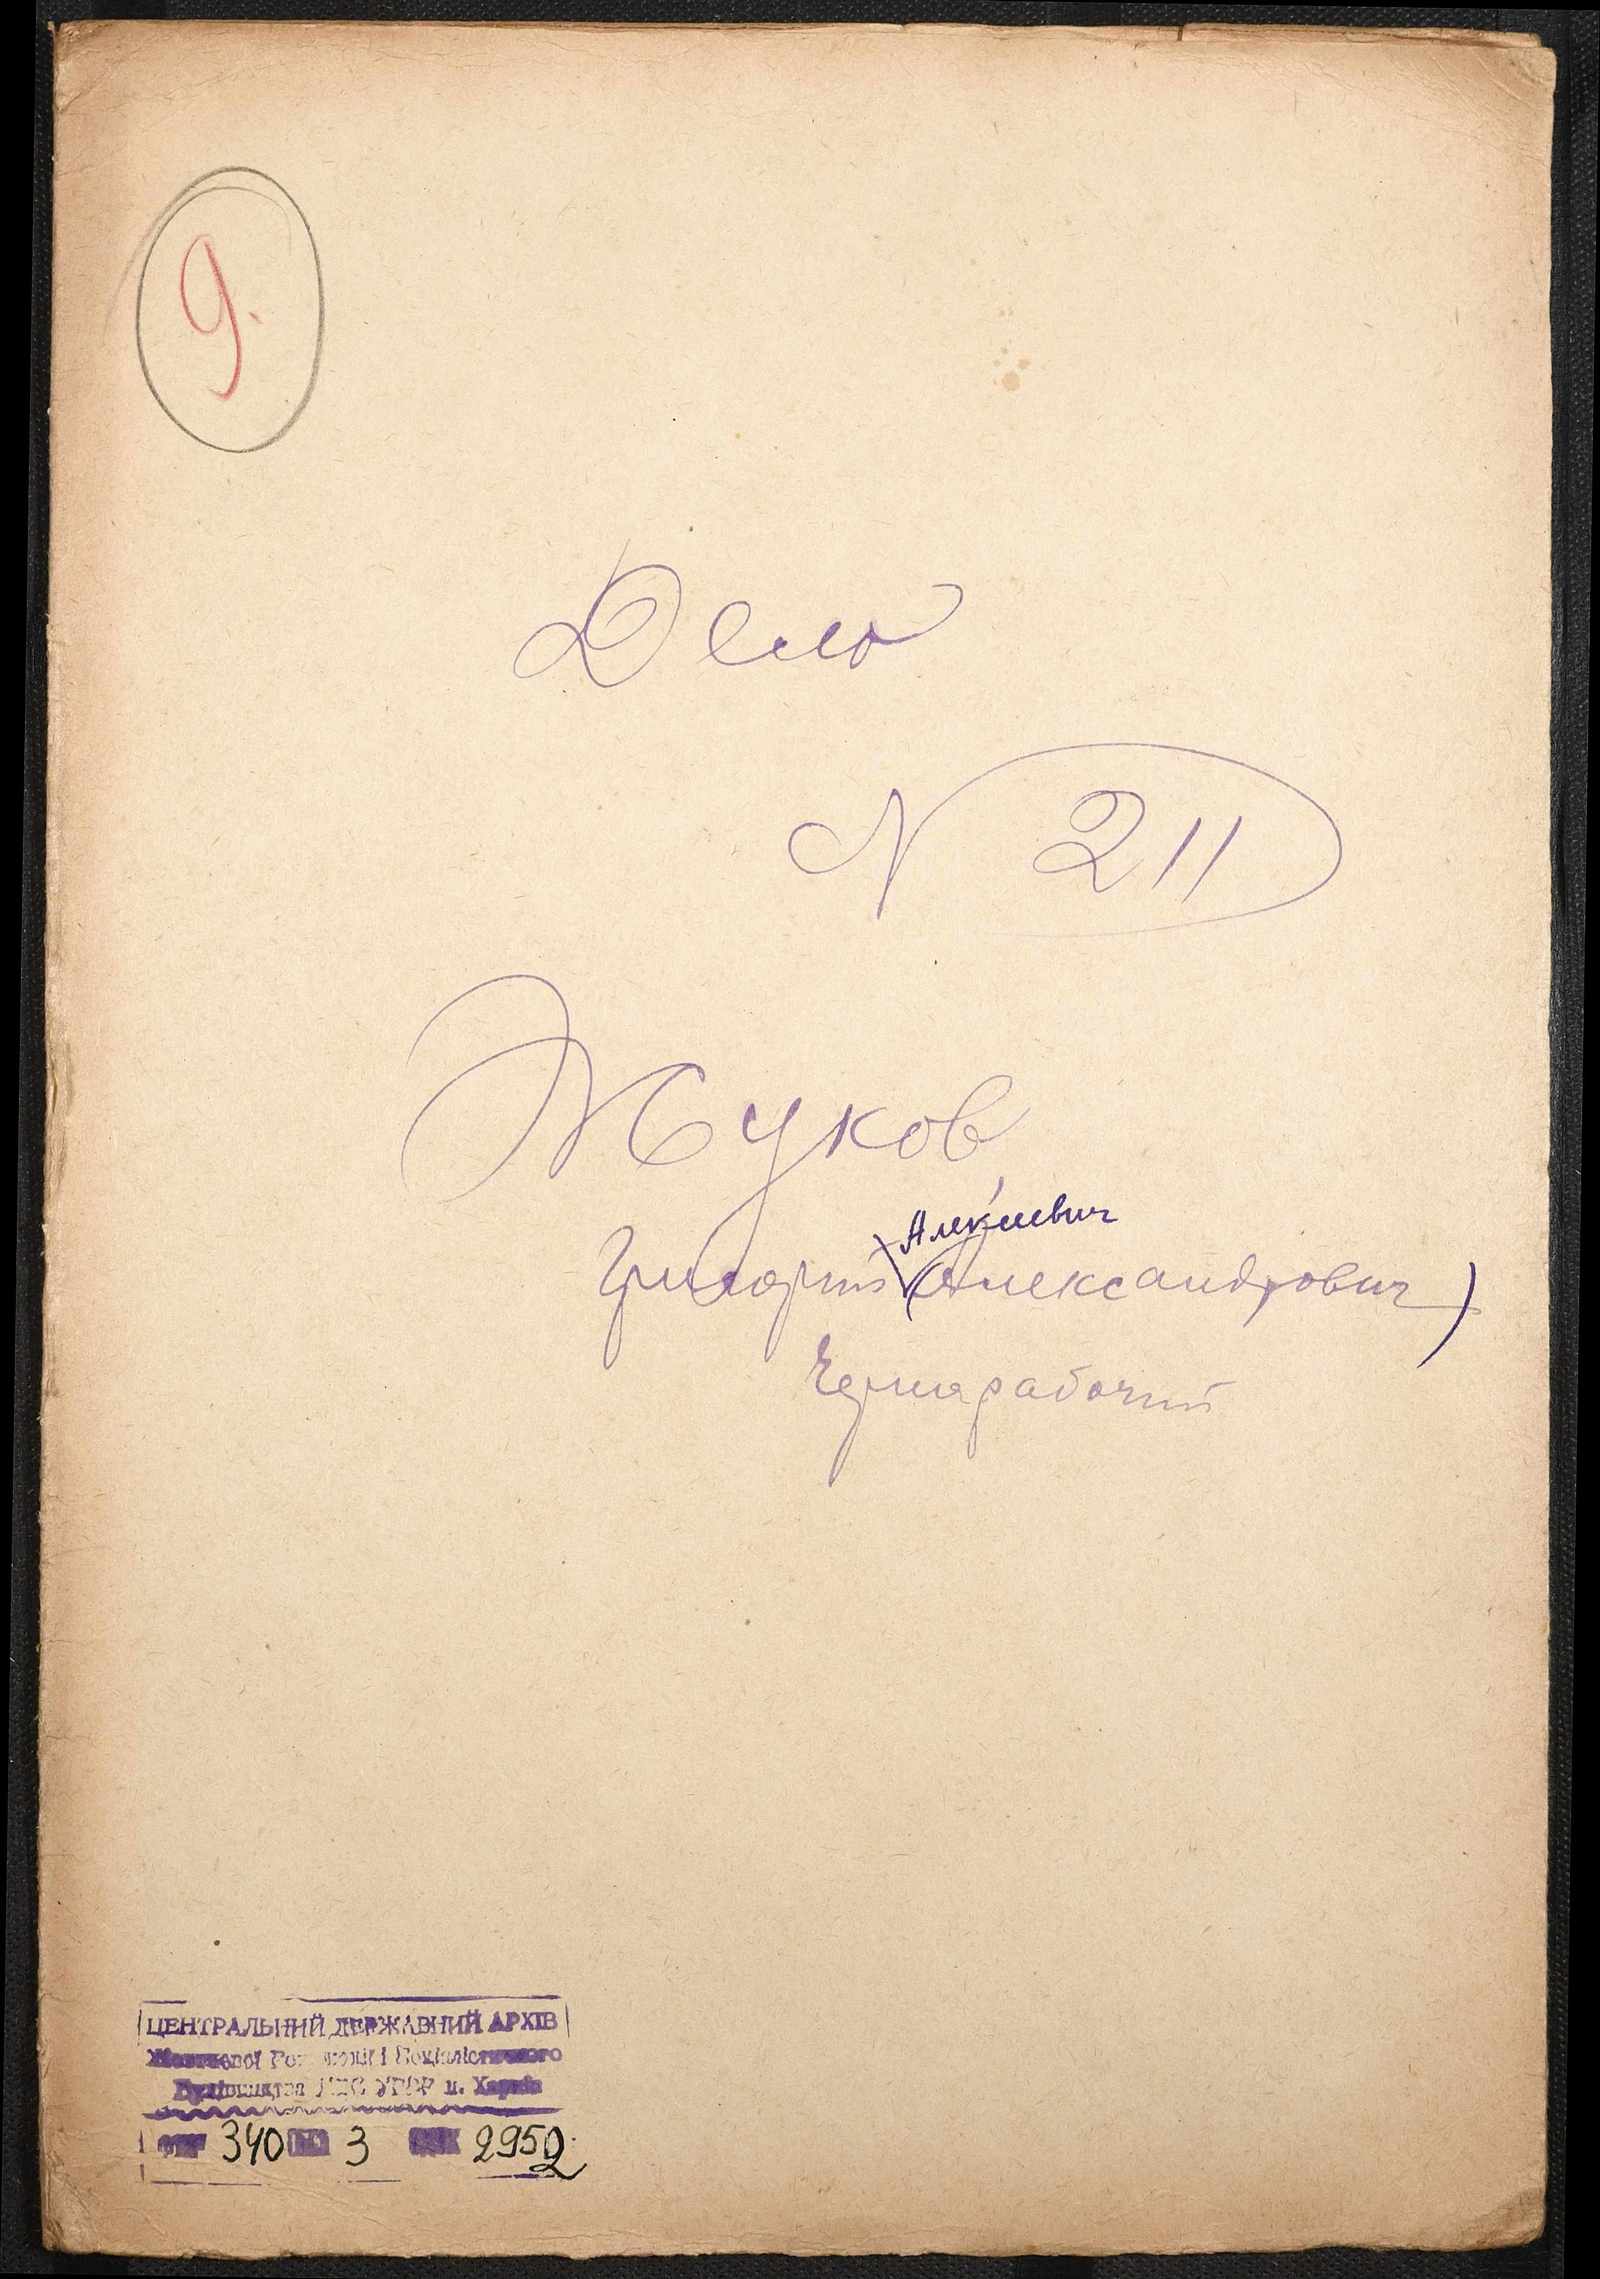 9.
Дело
N 211
Жуков
Алексеевич
Григорий (Александрович)
Чернорабочий
ЦЕНТРАЛЬНИЙ ДЕРЖАВНИЙ АРХІВ
Жовтневої Революції і Соціалістичного
Будівництва УРСР м. Харків
340 3 2952